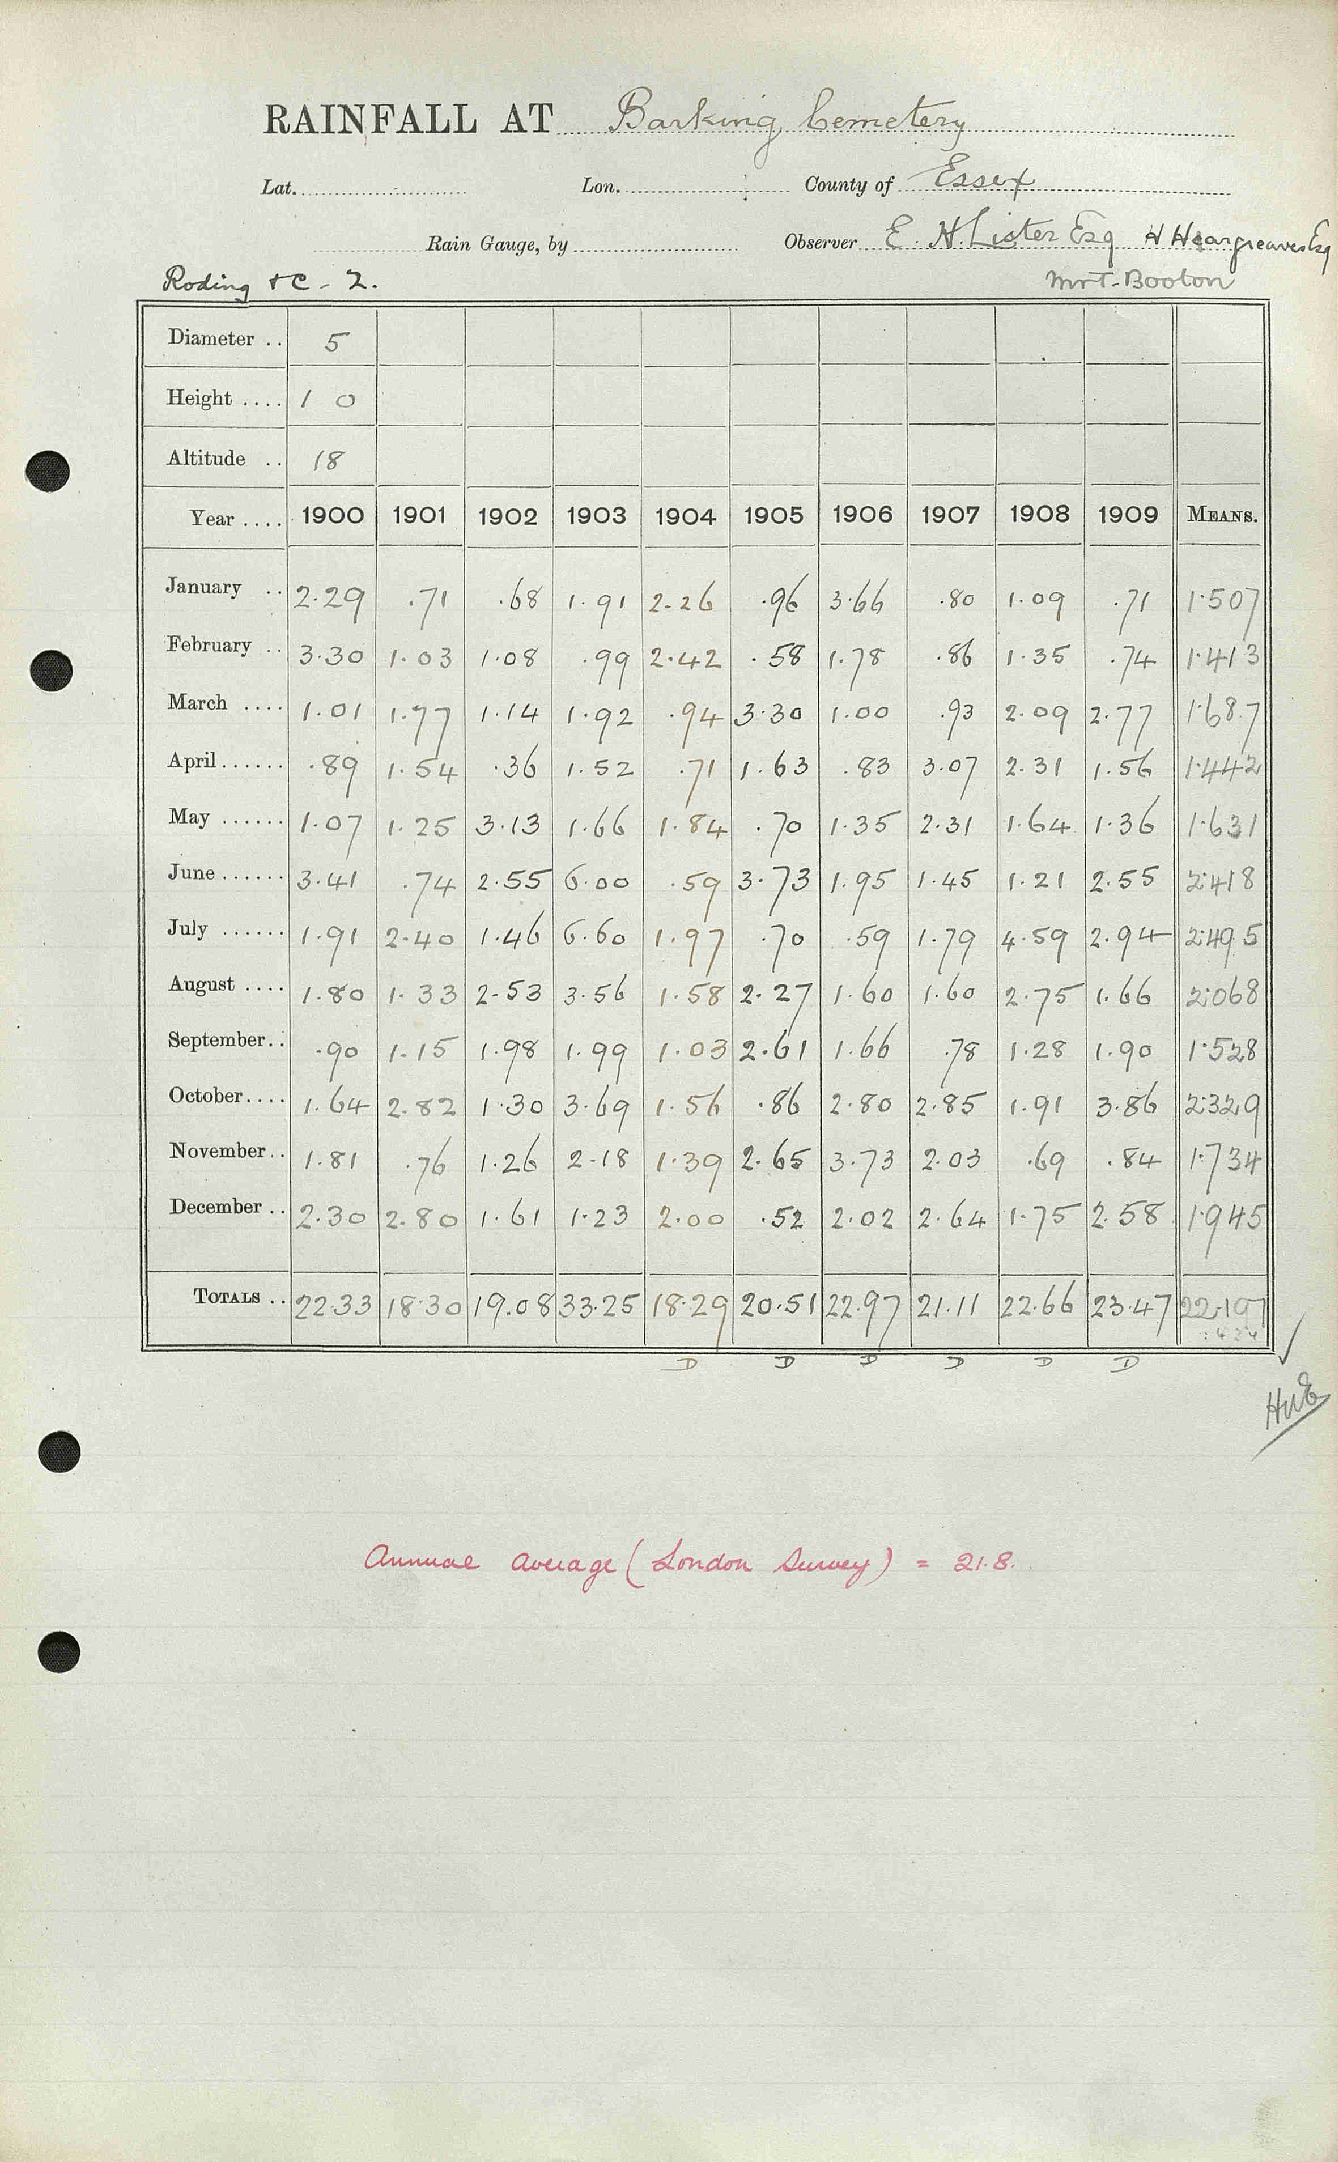 RAINFALL AT Barking Cemetery
Lat. Lon. County of Essex
Rain Gauge, by Observer E. H. Lister Esq H Heargreaves Esq
Roding & C - 2. Mr T. Booton
Diameter .. 5
Height .... 1 0
Altitude .. 18
Year .... 1900 1901 1902 1903 1904 1905 1906 1907 1908 1909 MEANS.
January .. 2.29 .71 .68 1.91 2.26 .96 3.66 .80 1.09 .71 1.507
February .. 3.30 1.03 1.08 .99 2.42 .58 1.78 .86 1.35 .74 1.413
March .... 1.01 1.77 1.14 1.92 .94 3.30 1.00 .93 2.09 2.77 1.687
April ...... .89 1.54 .36 1.52 .71 1.63 .83 3.07 2.31 1.56 1.442
May ...... 1.07 1.25 3.13 1.66 1.84 .70 1.35 2.31 1.64 1.36 1.631
June ...... 3.41 .74 2.55 6.00 .59 3.73 1.95 1.45 1.21 2.55 2.418
July ...... 1.91 2.40 1.46 6.60 1.97 .70 .59 1.79 4.59 2.94 2.495
August .... 1.80 1.33 2.53 3.56 1.58 2.27 1.60 1.60 2.75 1.66 2.068
September .. .90 1.15 1.98 1.99 1.03 2.61 1.66 .78 1.28 1.90 1.528
October .... 1.64 2.82 1.30 3.69 1.56 .86 2.80 2.85 1.91 3.86 2.329
November .. 1.81 .76 1.26 2.18 1.39 2.65 3.73 2.03 .69 .84 1.734
December .. 2.30 2.80 1.61 1.23 2.00 .52 2.02 2.64 1.75 2.58 1.945
TOTALS .. 22.33 18.30 19.08 33.25 18.29 20.51 22.97 21.11 22.66 23.47 22.197
D D D D D D
Annual average (London Survey) = 21.8.